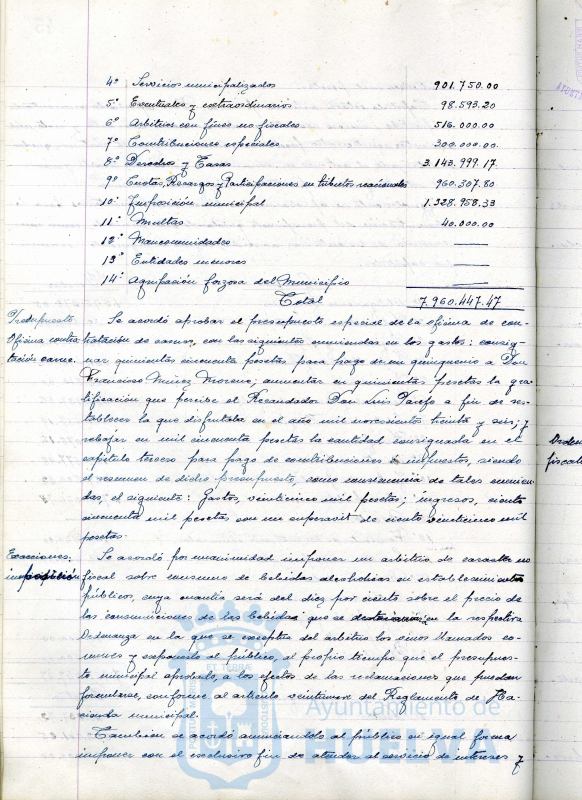 4º Servicios municipalizados 901.750.00
5º Eventuales y extraordinarios 98.593.20
6º Arbitrios con fines no fiscales 516.000.00
7º Contribuciones especiales 300.000.00
8º Derechos y Tasas 3.143.999.17
9º Cuotas, Recargos y Participaciones en tributos nacionales 960.307.80
10º Imposición municipal 1.928.958.33
11º Multas 40.000.00
12º Mancomunidades
13º Entidades menores
14º Agrupación forzosa del Municipio
Total 7.960.447.47
Presupuesto
Oficina contra-
tación carne.
Se acordó aprobar el presupuesto especial de la oficina de con-
tratación de carnes, con las siguientes enmiendas en los gastos: consig-
nar quinientas cincuenta pesetas para pago de un quinquenio a Don
Francisco Muñoz Moreno; aumentar en quinientas pesetas la gra-
tificación que percibe el Recaudador Don Luis a fin de res-
tablecer la que disfrutaba en el año mil novecientos treinta y seis; y
rebajar en mil cincuenta pesetas la cantidad consignada en el
capítulo tercero para pago de contribuciones é impuestos, siendo
el resumen de dicho presupuesto, como consecuencia de tales enmien-
das, el siguiente: Gastos, veinticinco mil pesetas; ingresos, ciento
cincuenta mil pesetas con un superavit de ciento veinticinco mil
pesetas.
Exacciones,
imposición
Se acordó por unanimidad imponer un arbitrio de caracter no
fiscal sobre consumo de bebidas alcohólicas en establecimientos
públicos, cuya cuantía será del diez por ciento sobre el precio de
las consumiciones de las bebidas que se en la respectiva
Ordenanza en la que se exceptúa del arbitrio los vinos llamados co-
munes y exponerlo al público, al propio tiempo que el presupues-
to municipal aprobado, a los efectos de las reclamaciones que puedan
formularse, conforme al artículo veintinueve del Reglamento de Ha-
cienda municipal.
También se acordó anunciándolo al público en igual forma
imponer con el exclusivo fin de atender al servicio de intereses y
Orden
fiscal
Ayuntamiento de
HUELVA